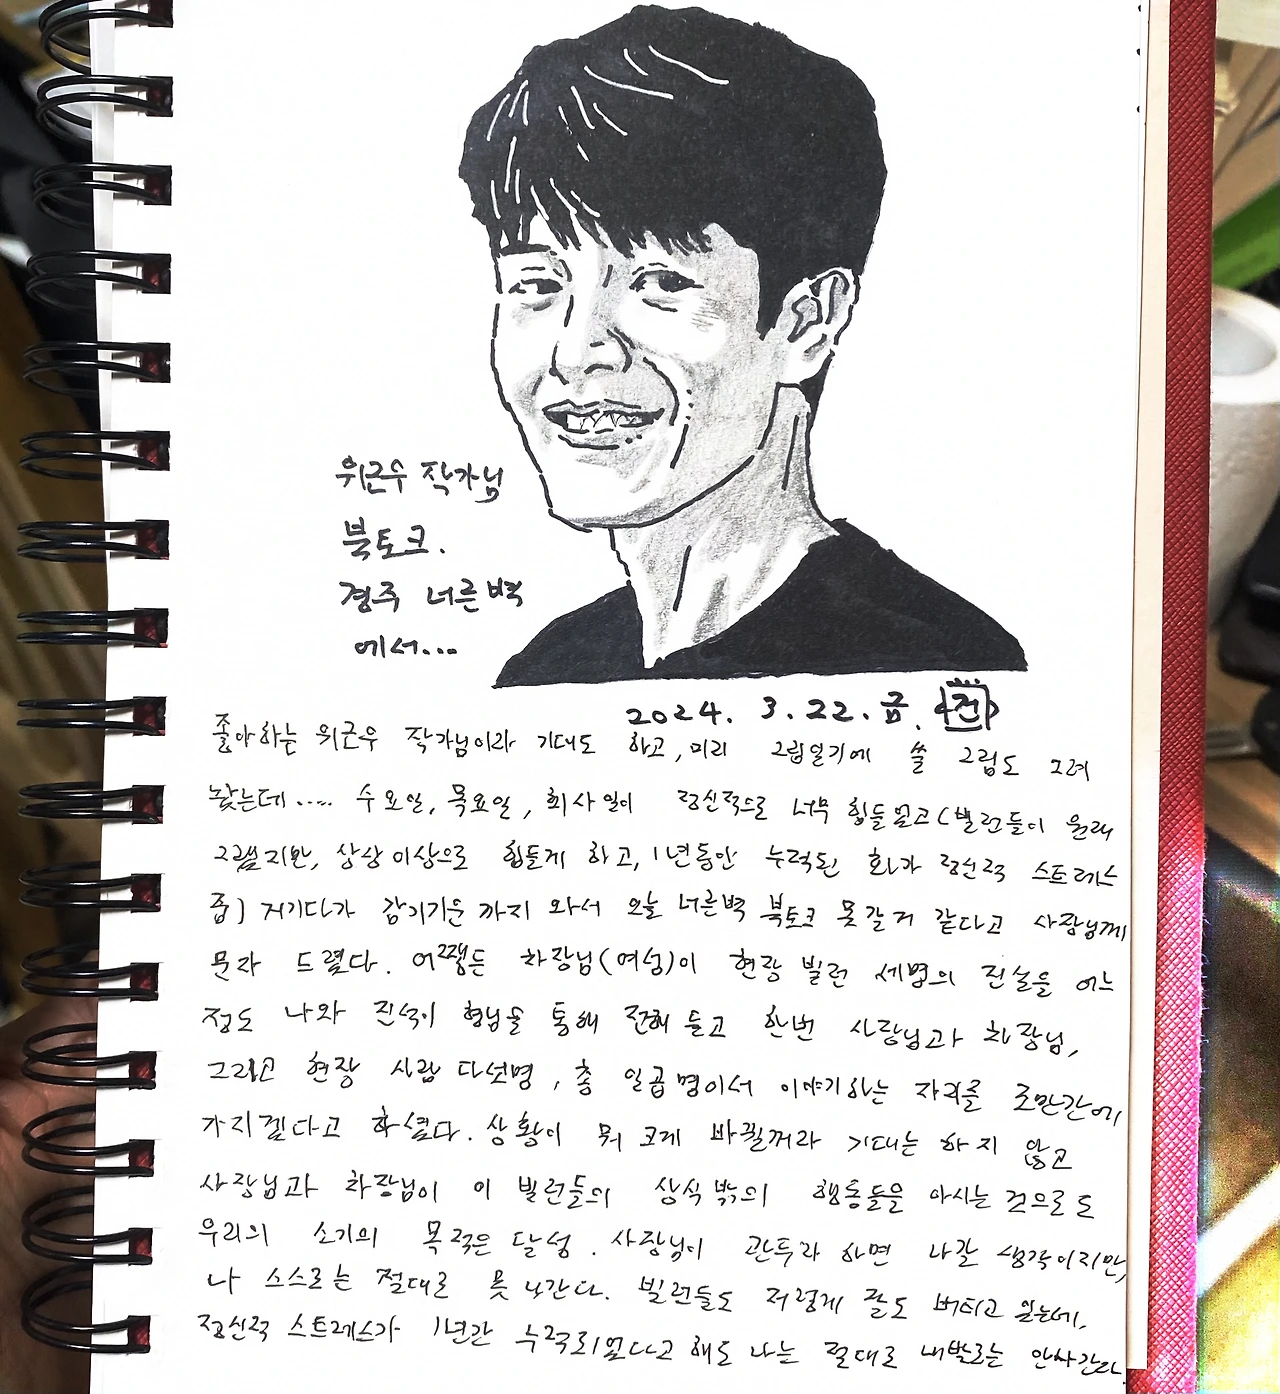 위근우 작가님
북토크.
경주 너른벽
에서...
2024. 3. 22. 금. 건
좋아하는 위근우 작가님이라 기대도 하고, 미리 그림일기에 쓸 그림도 그려
놨는데..... 수요일, 목요일, 회사일이 정신적으로 너무 힘들었고(빌런들이 원래
그랬지만, 상상이상으로 힘들게 하고, 1년동안 누적된 화가 정신적 스트레스
쥼) 거기다가 감기기운까지 와서 오늘 너른벽 북토크 못갈거 같다고 사장님께
문자 드렸다. 어쨌든 차장님(여성)이 현장 빌런 세명의 진실을 어느
정도 나와 진석이 형님을 통해 전해 듣고 한번 사장님과 차장님,
그리고 현장 사람 다섯명, 총 일곱명이서 이야기하는 자리를 조만간에
가지겠다고 하셨다. 상황이 뭐 크게 바뀔꺼라 기대는 하지 않고
사장님과 차장님이 이 빌런들의 상식밖의 행동들을 아시는 것으로도
우리의 소기의 목적은 달성. 사장님이 관두라 하면 나갈 생각이지만,
나 스스로는 절대로 못 나간다. 빌런들도 저렇게 잘도 버티고 있는데,
정신적 스트레스가 1년간 누적되었다고 해도 나는 절대로 내발로는 안나간다.